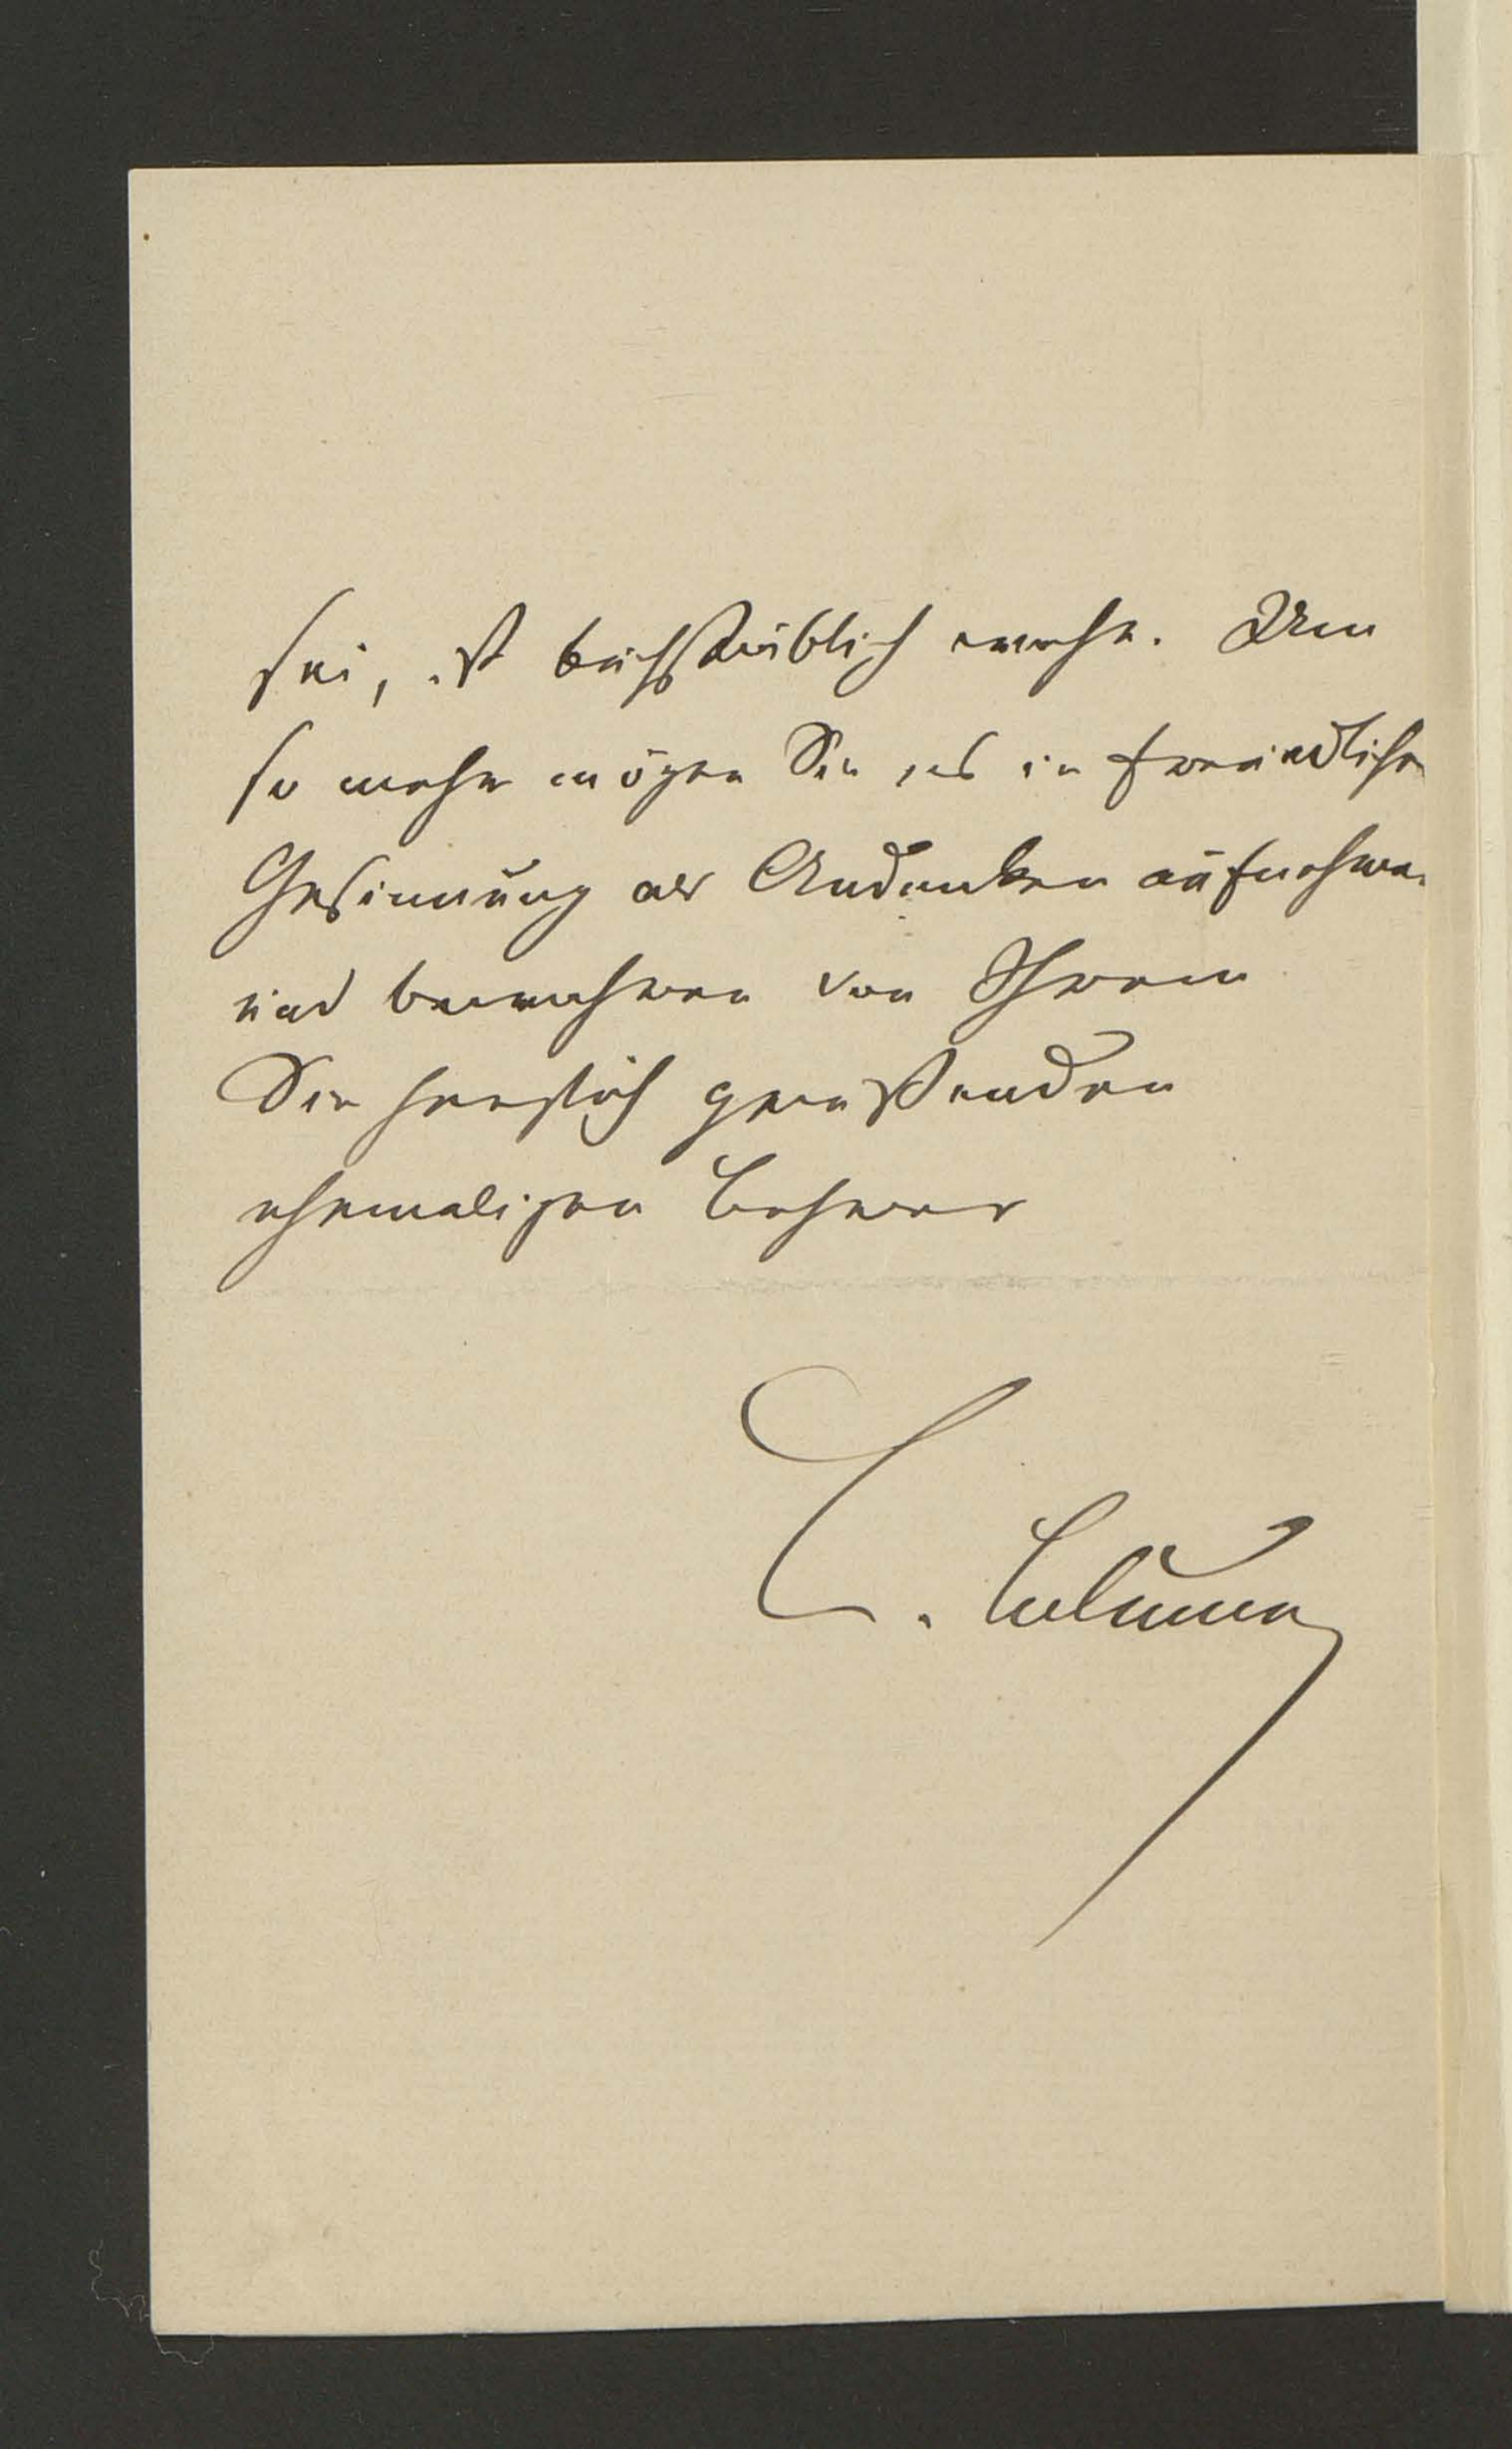 sei, ist buchstäblich wahr. Um
so mehr mögen Sie es in freundlicher
Gesinnung als Andenken aufnehmen
und bewahren von Ihrem
Sie herzlich grüßenden
ehemaligen Lehrer